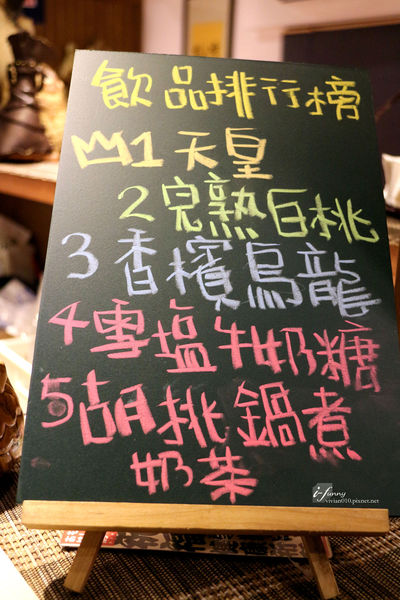 飲品排行榜
1 天皇
2 完熟白桃
3 香檳烏龍
4 雪塩牛奶糖
5 胡挑鍋煮
奶茶
i-funny
vivian010.pixnet.net